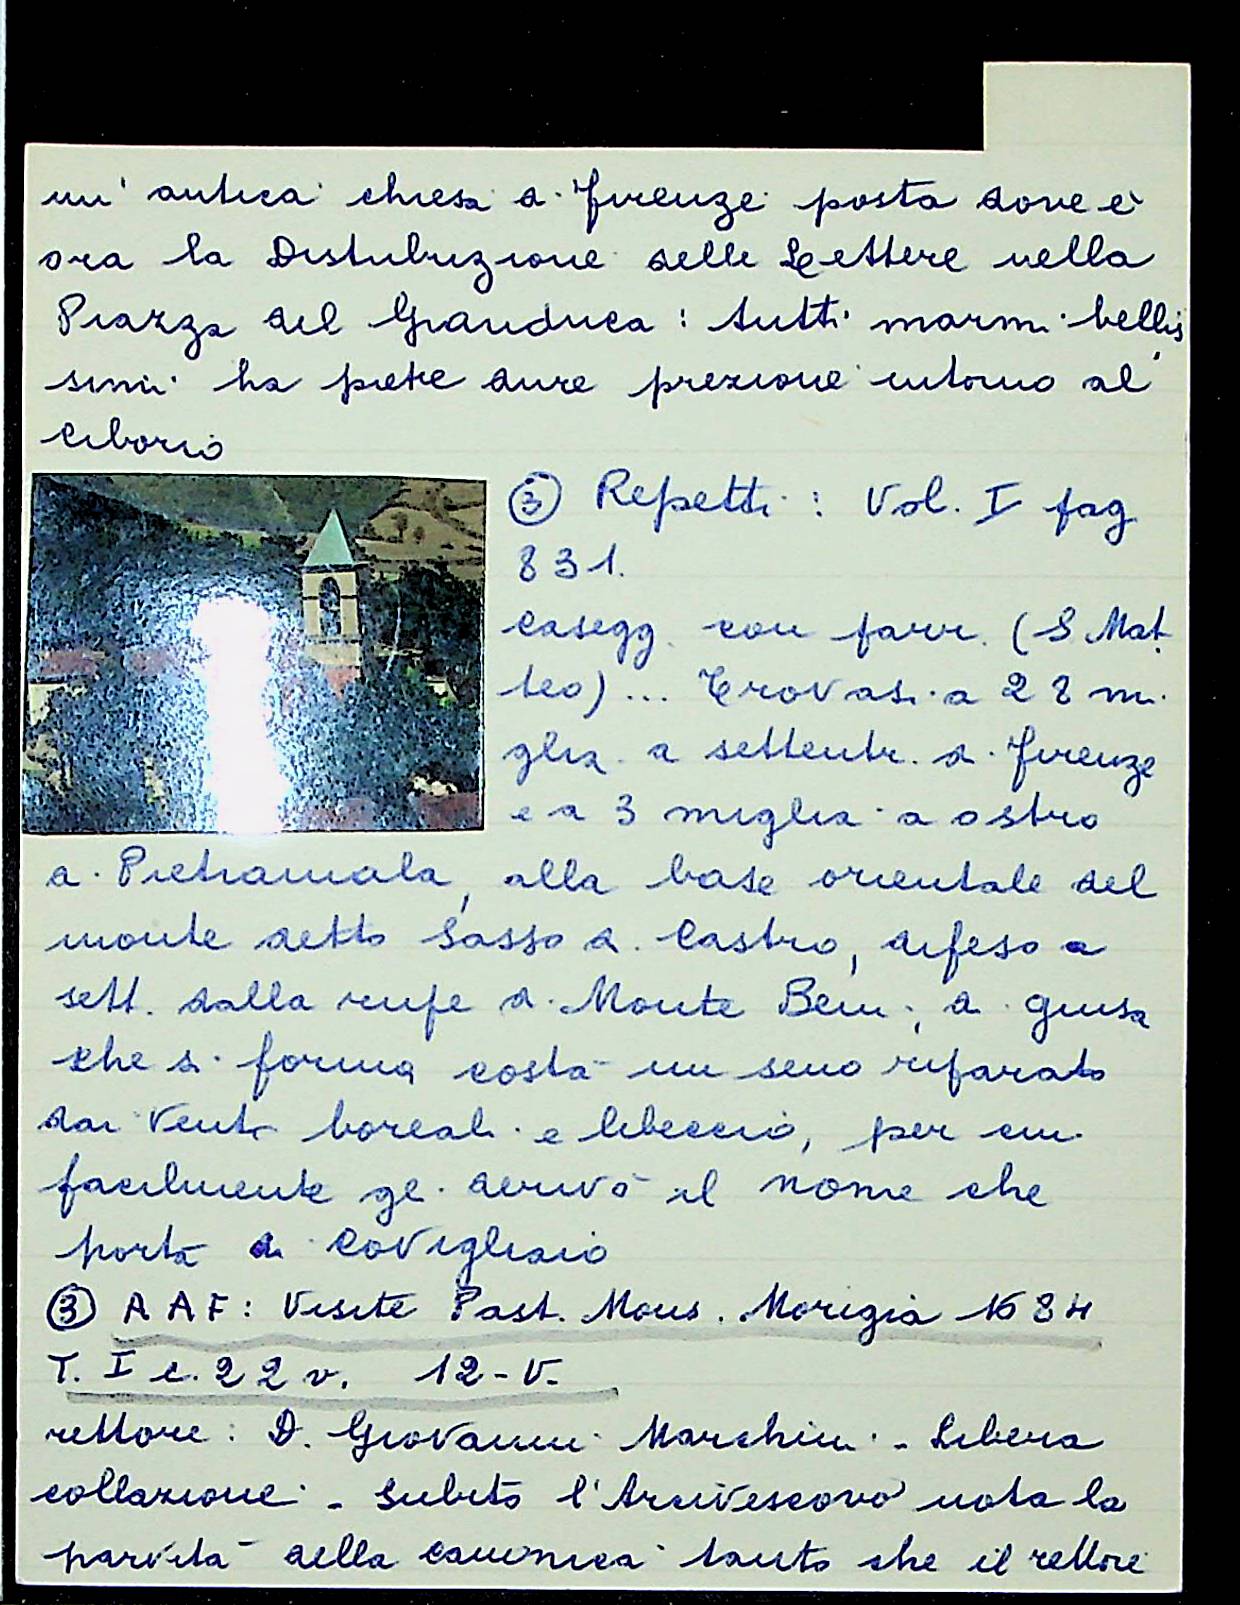 un' antica chiesa di Firenze posta dove è
ora la Distribuzione delle Lettere nella
Piazza del Granduca: tutti marmi bellis
simi ha pietre dure preziose intorno al
ciborio
③ Repetti: Vol. I pag
831.
Casegg. con parr. (S Mat
teo)... Trovasi a 28 mi
glia a settentr. di Firenze
e a 3 miglia a ostro
a Pietramala, alla base orientale del
monte detto Sasso di Castro, difeso a
sett. dalla rupe di Monte Beni, di guisa
che si forma costà un seno riparato
dai venti boreali e libeccio, per cui
facilmente gli derivò il nome che
porta di Covigliaio
③ AAF: Visite Past. Mons. Morigia 1684
T. I c. 22 v. 12-V-
rettore: D. Giovanni Marchini - Libera
collazione - Subito l'Arcivescovo nota la
parvità della canonica tanto che il rettore